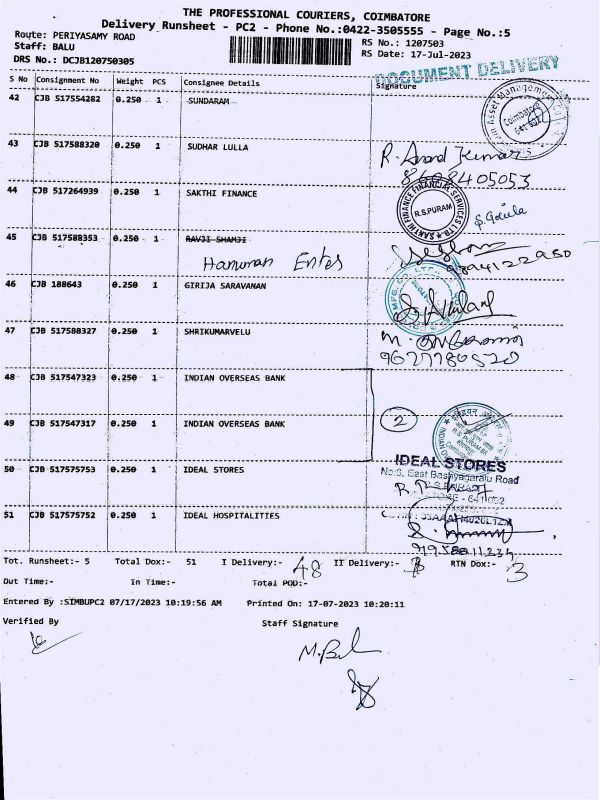 THE PROFESSIONAL COURIERS, COIMBATORE
Delivery Runsheet - PC2 - Phone No.:0422-3505555 - Page No.:5
Route: PERIYASAMY ROAD
RS No.: 1207503
Staff: BALU
RS Date: 17-Jul-2023
DRS No.: DCJB120750305
DOCUMENT DELIVERY
S No Consignment No Weight PCS Consignee Details Signature
42 CJB 517554282 0.250 1 SUNDARAM
Coimbatore
43 CJB 517588320 0.250 1 SUDHAR LULLA
R. Anand Kumar
8608405053
44 CJB 517264939 0.250 1 SAKTHI FINANCE
SAKTHI FINANCE FINANCIAL SERVICES LTD
R.S.PURAM
45 CJB 517588353 0.250 1 RAVJI SHAMJI
Hanuman Entes
9894122950
46 CJB 188643 0.250 1 GIRIJA SARAVANAN
47 CJB 517588327 0.250 1 SHRIKUMARVELU
9627780520
48 CJB 517547323 0.250 1 INDIAN OVERSEAS BANK
2
49 CJB 517547317 0.250 1 INDIAN OVERSEAS BANK
50 CJB 517575753 0.250 1 IDEAL STORES
IDEAL STORES
No:9, East Bashyagaralu Road
51 CJB 517575752 0.250 1 IDEAL HOSPITALITTES
Tot. Runsheet:- 5 Total Dox:- 51 I Delivery:- 48 II Delivery:- RTN Dox:- 3
Out Time:- In Time:- Total POD:-
Entered By :SIMBUPC2 07/17/2023 10:19:56 AM Printed On: 17-07-2023 10:20:11
Verified By Staff Signature